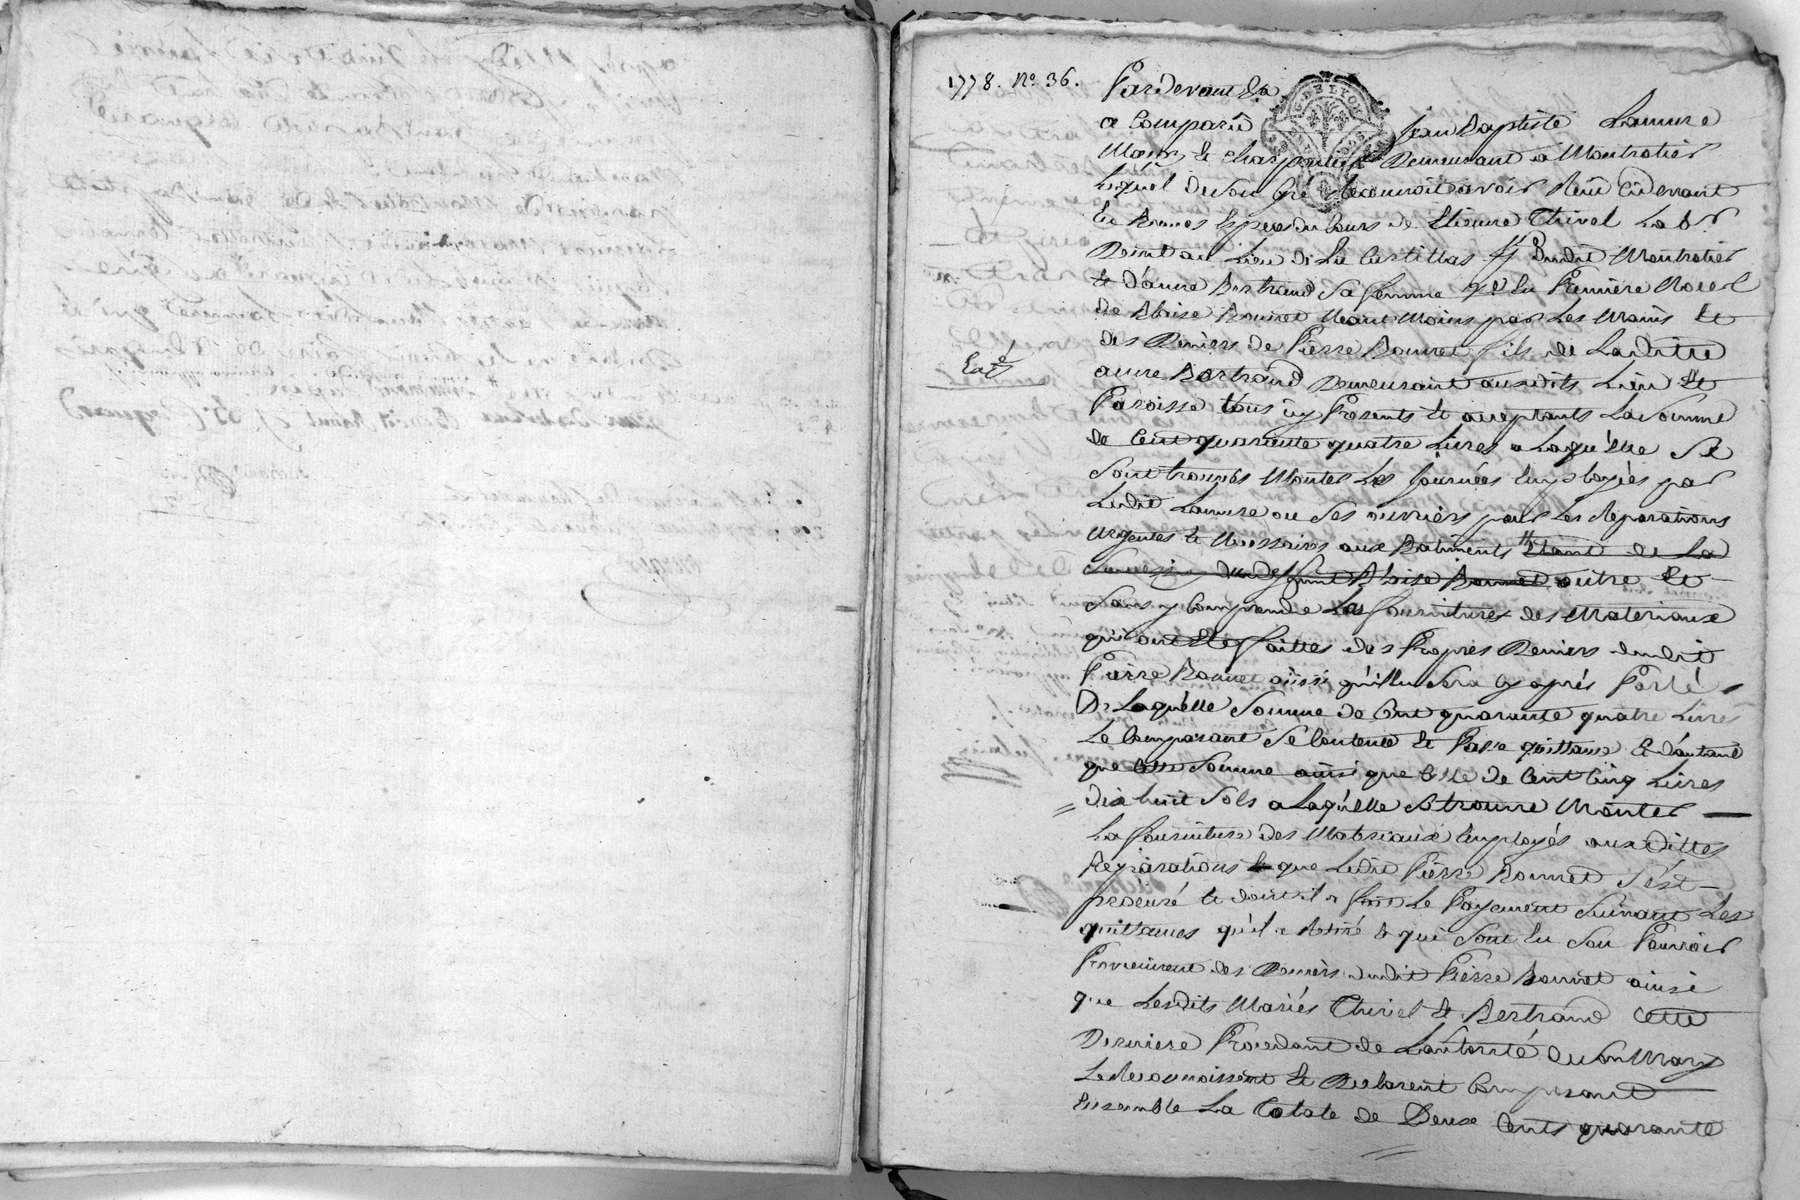 1778. No. 36.
Pardevant &a
a Comparû Jean Baptiste Lamure
Me. charpentier Demeurant a Montrotier
Lequel de son Gré Reconnoit avoir Reçu Cidevant
En Bonnes Espèces du Cours de Etienne Thivel Labr.
Demt au Lieu de La Custillas psse dudit Montrotier
& d'anne Bertrand sa femme ve. En Première Noces
de Blaise Bonnet Neant Moins par Les Mains Et
des Deniers de Pierre Bonnet fils de Laditte
anne Bertrand Demeurant ausdits Lieu Et
Paroisse tous icy Presents & acceptants La Somme
de Cent quarante quatre Livres a Laquelle Se
Sont trouvés Monter Les Journées Employées par
Ledit Lamure ou Ses ouvriers pour Les Reparations
Urgentes & Necessaires aux Batiments Etant de La
Succession du deffunt Blaise Bonnet outre Et
Sans y Comprendre Les fournitures des Materiaux
qui ont Eté faittes des Propres Deniers dudit
Pierre Bonnet ainsi qu'il En Sera Cy après Porté
De Laquelle Somme de Cent quarante quatre Livres
Le Comparant Se Contente Et Passe quittance & d'autant
que Cette Somme ainsi que Celle de Cent Cinq Livres
dix huit Sols a Laquelle Se trouve Monter
La fourniture des Materiaux Employés aux Dittes
Reparations & que Ledit Pierre Bonnet S'est
procuré & dont il a fait Le Payement Suivant Les
quittances qu'il a Retiré & qui Sont En Son Pouvoir
Proviennent des Deniers dudit Pierre Bonnet ainsi
que Lesdits Mariés Thivel & Bertrand Cette
Derniere Procedant de L'autorité de son Mary
Le Reconnoissent Et Declarent Composant
Ensemble La Totale de Deux Cents quarante